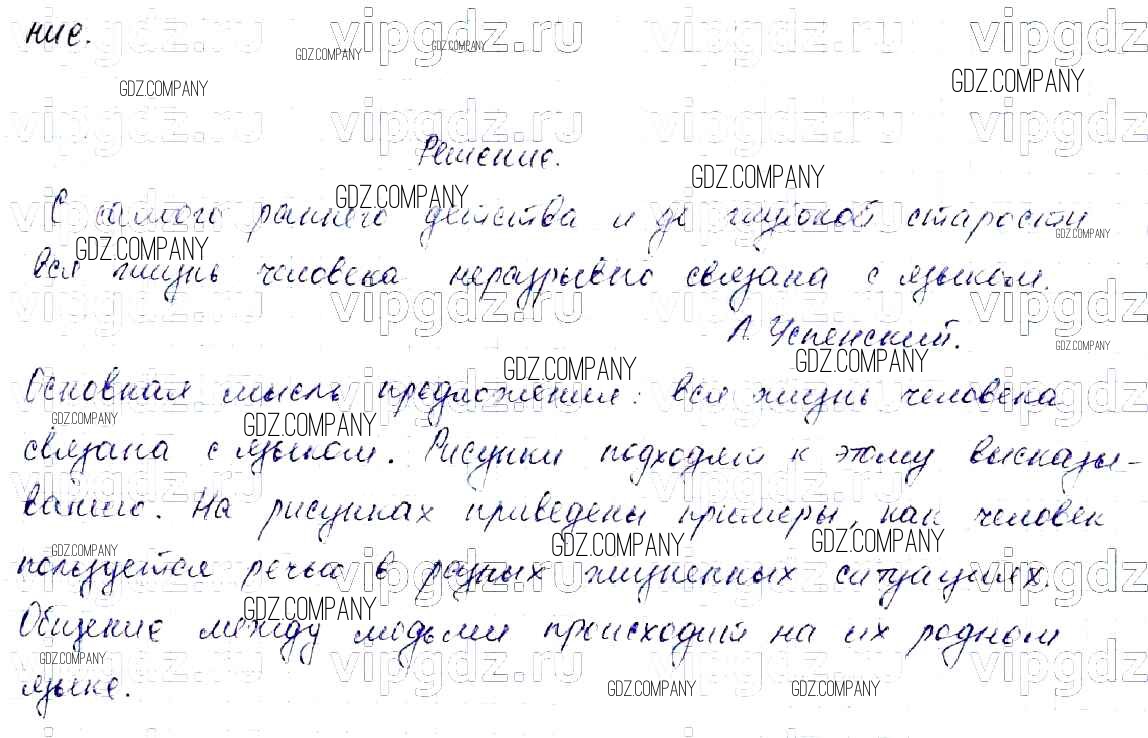 ние.
Решение.
С самого раннего детства и до глубокой старости
вся жизнь человека неразрывно связана с языком.
Л. Успенский.
Основная мысль предложения: вся жизнь человека
связана с языком. Рисунки подходят к этому высказы-
ванию. На рисунках приведены примеры, как человек
пользуется речью в разных жизненных ситуациях.
Общение между людьми происходит на их родном
языке.
vipgdz.ru
GDZ.COMPANY